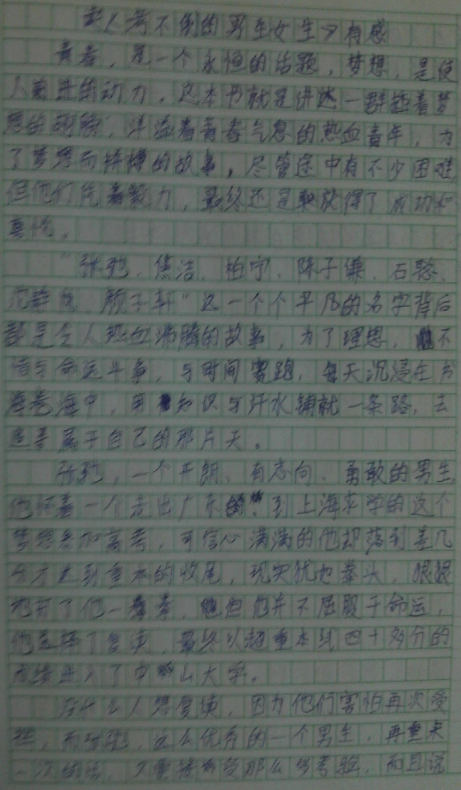 人看不倒的男生女生》有感
青春，是一个永恒的话题，梦想，是使
人前进的动力，这本书就是讲述一群插着梦
想的翅膀，洋溢着青春气息的热血青年，为
了梦想而拼搏的故事，尽管途中有不少困难
但他们凭着毅力，最终还是取得了成功和
喜悦。
张弛、焦洁、柏宁、陈子
轩”这一个个平凡的名字背后
都是令人热血沸腾的故事，为了理想，不
与命运斗争，与时间赛跑，每天沉浸在书
海中，用知识与汗水铺就一条路，去
追寻属于自己的那片天。
张弛，一个开朗、有志向、勇敢的男生
他怀着一个走出广东的，到上海求学的这个
梦想参加高考，可信心满满的他却落到差几
分才达到重本的收尾，现实犹如拳头，狠狠
地打了他一拳，但他并不屈服于命运，
他选择了复读，最终以超重本线四十多分的
成绩进入了中山大学。
没什么人想复读，因为他们害怕再次受
挫，而张弛，这么优秀的一个男生，再重来
一次的话，又要接受那么多考验，而且说